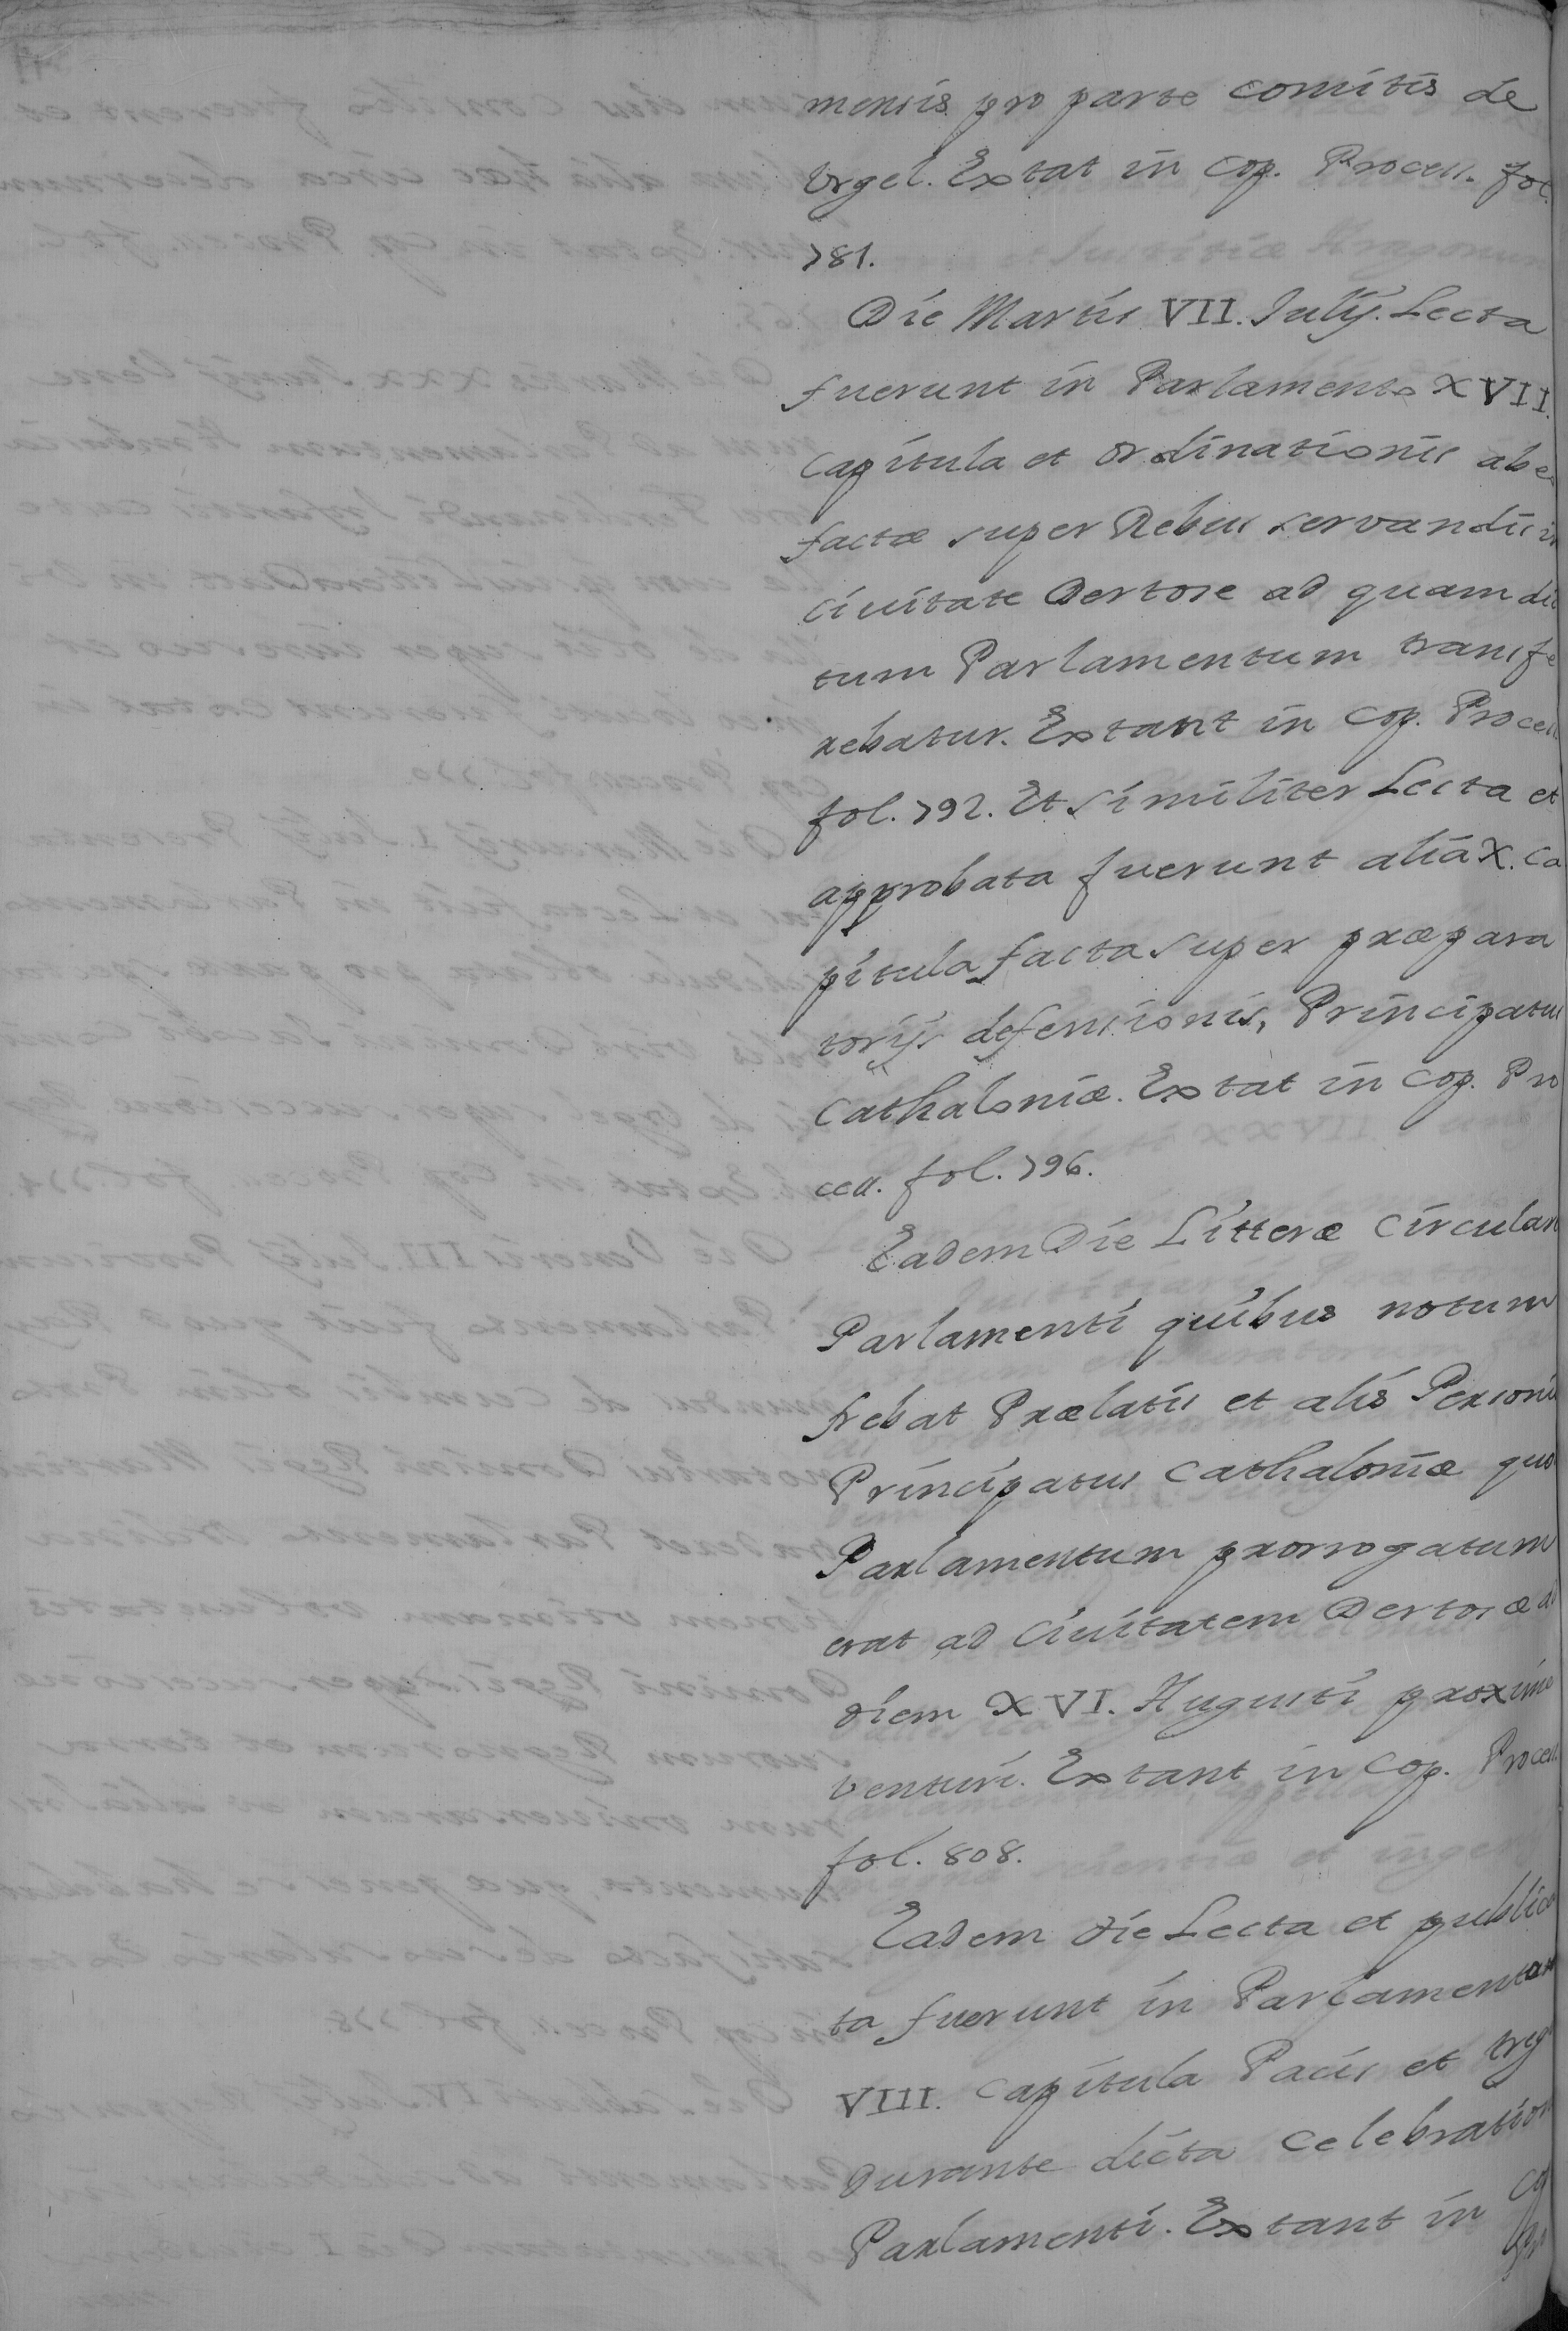 mensis pro parte comitis de
Vrgel. Extat in Cop. Process. fol.
781.
Die Martis VII. Julij. Lecta
fuerunt in Parlamento XVII.
Capitula et ordinationis ab e
factæ super Rebus servandis in
Civitate Dertose ad quam dic
tum Parlamentum transfe
rebatur. Extant in Cop. Process.
fol. 792. Et similiter Lecta et
approbata fuerunt alia X. Ca
pitula facta super præpara
torijs defensionis, Principatus
Cathaloniæ. Extat in Cop. Pro
cess. fol. 796.
Eadem Die Litteræ Circular
Parlamenti quibus notum
fiebat Prælatis et aliis Personis
Principatus Cathaloniæ quo
Parlamentum prorrogatum
erat ad Civitatem Dertosæ ad
diem XVI. Augusti proxime
venturi. Extant in Cop. Process.
fol. 808.
Eadem die Lecta et publica
ta fuerunt in Parlamento
VIII. Capitula Pacis et treg
Durante dicta Celebration
Parlamenti. Extant in Cop